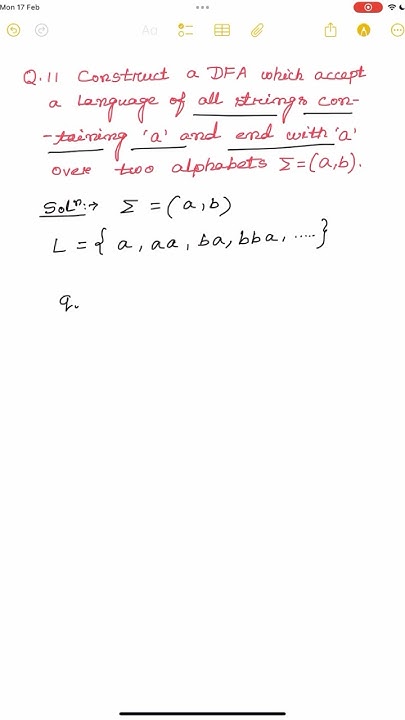 Mon 17 Feb
Q.11 Construct a DFA which accept
a language of all strings con-
-taining 'a' and end with 'a'
over two alphabets Σ=(a,b).
Solⁿ:→ Σ = (a,b)
L = { a, aa, ba, bba, ..... }
q.